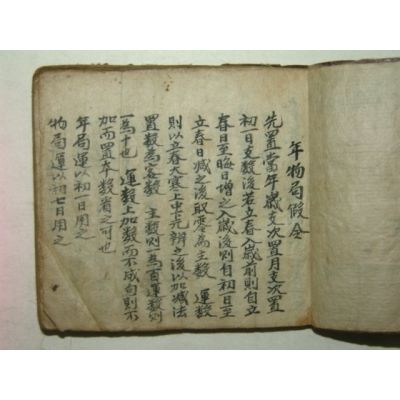 年物局假令
先置當年歲支次置月支次置
初一日支數後若立春入歲前則自立
春日至晦日增之入歲後則自初一日至
立春日减之後取零為主數　運數
則以立春大寒上中元辨之後以加减法
置數為客數　主數則為百運數則
為十也　運數上加數而不成旬則不
加而置本數省之可也
年局運以初一日用之
物局運以初七日用之